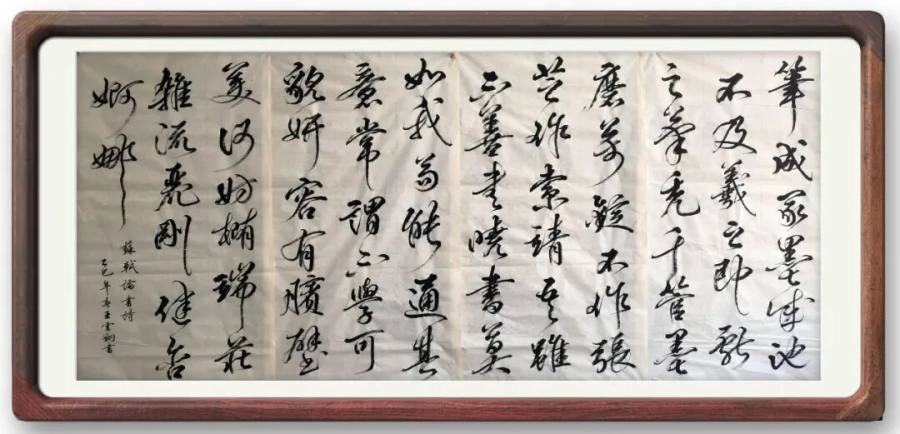 筆成冢墨成池
不及羲之即獻
之筆禿千管墨
磨萬錠不作張
芝作索靖吾雖
不善書曉書莫
如我苟能通其
意常謂不學可
貌妍容有矉璧
美何妨橢端莊
雜流麗剛健含
婀娜
蘇軾論書詩
乙巳年春王雲書